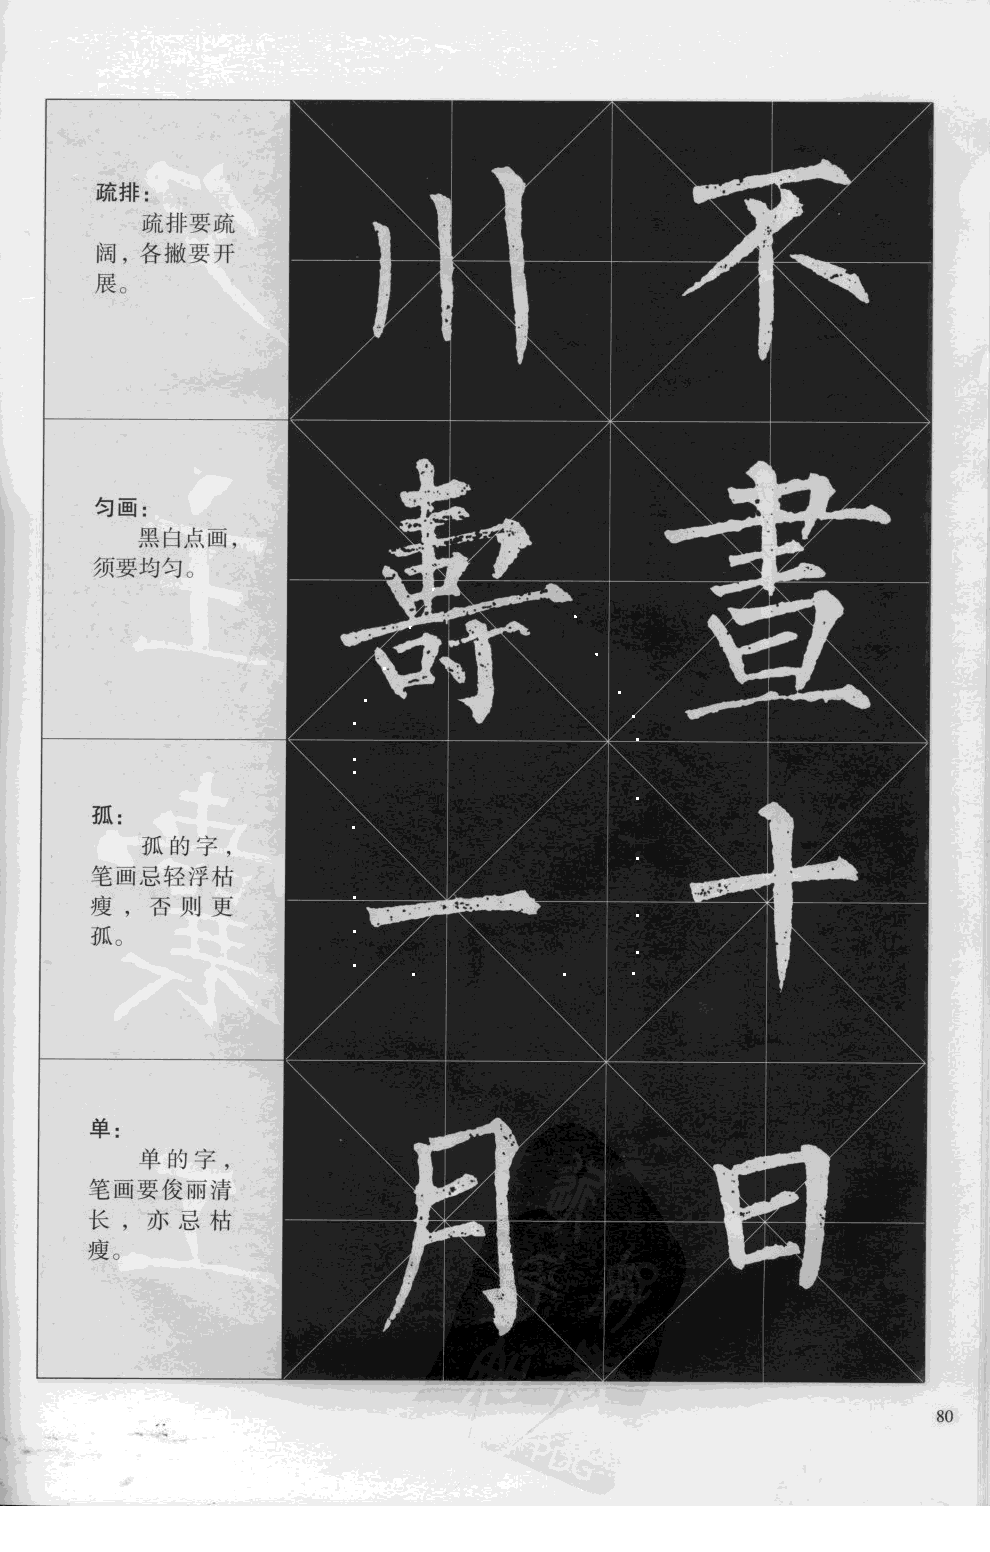 疏排：
疏排要疏
阔，各撇要开
展。
川 不
匀画：
黑白点画，
须要均匀。
壽 晝
孤：
孤的字，
笔画忌轻浮枯
瘦，否则更
孤。
一 十
单：
单的字，
笔画要俊丽清
长，亦忌枯
瘦。
月 日
80